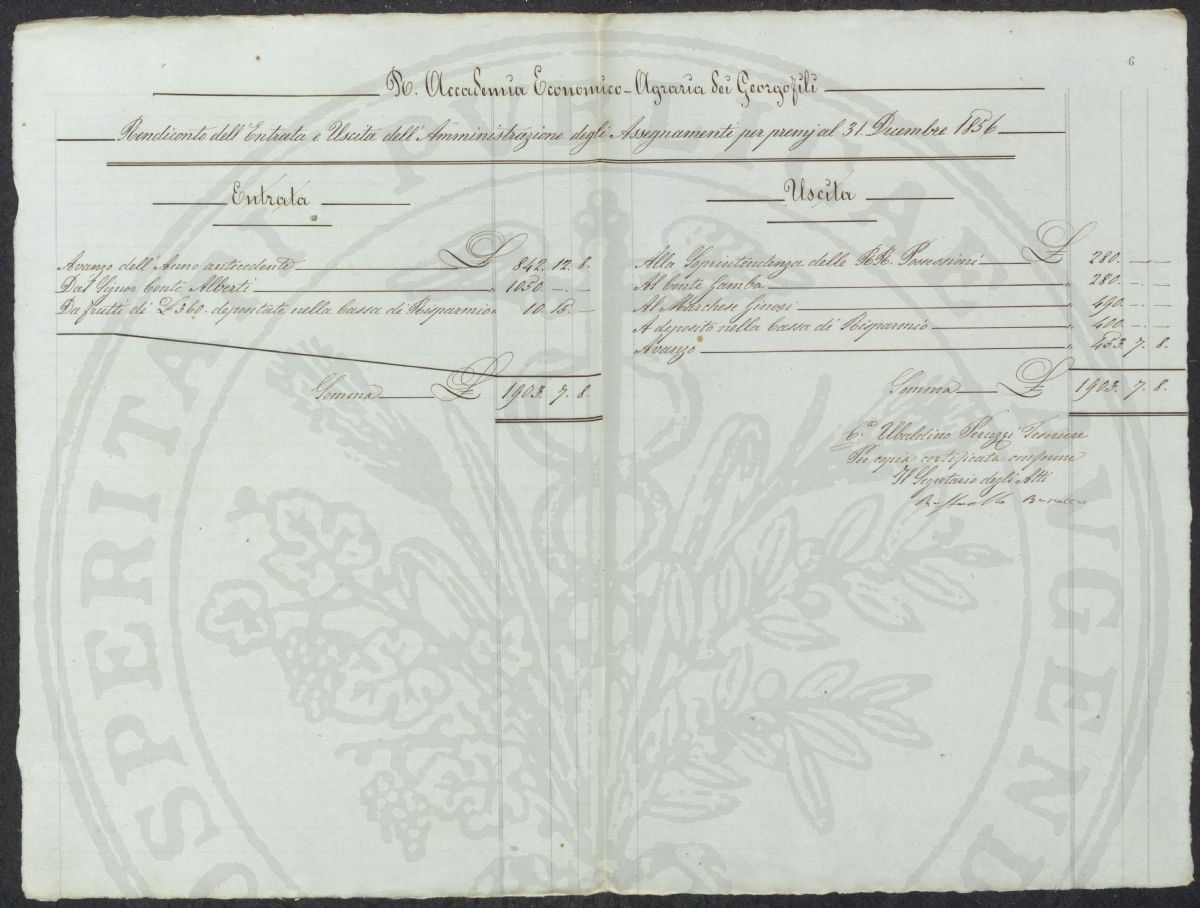 6
R. Accademia Economico-Agraria dei Georgofili
Rendiconto dell'Entrata e Uscita dell'Amministrazione degli Assegnamenti per premj al 31. Dicembre 1856
Entrata
Avanzo dell'Anno antecedente £ 842. 12. 8.
Dal Signor Conte Alberti " 1050. — —
Da frutti di £ 360. depositate nella Cassa di Risparmio " 10. 15. —
Somma £ 1903. 7. 8.
Uscita
Alla Soprintendenza delle RR. Possessioni £ 280. — —
Al Conte Gamba " 280. — —
Al Marchese Ginori " 490. — —
A deposito nella Cassa di Risparmio " 400. — —
Avanzo " 453. 7. 8.
Somma £ 1903. 7. 8.
Ubaldino Peruzzi Tesoriere
Per copia certificata conforme
Il Segretario degli Atti
Raffaello Busacca
PROSPERITATI PUBLICAE AUGENDAE